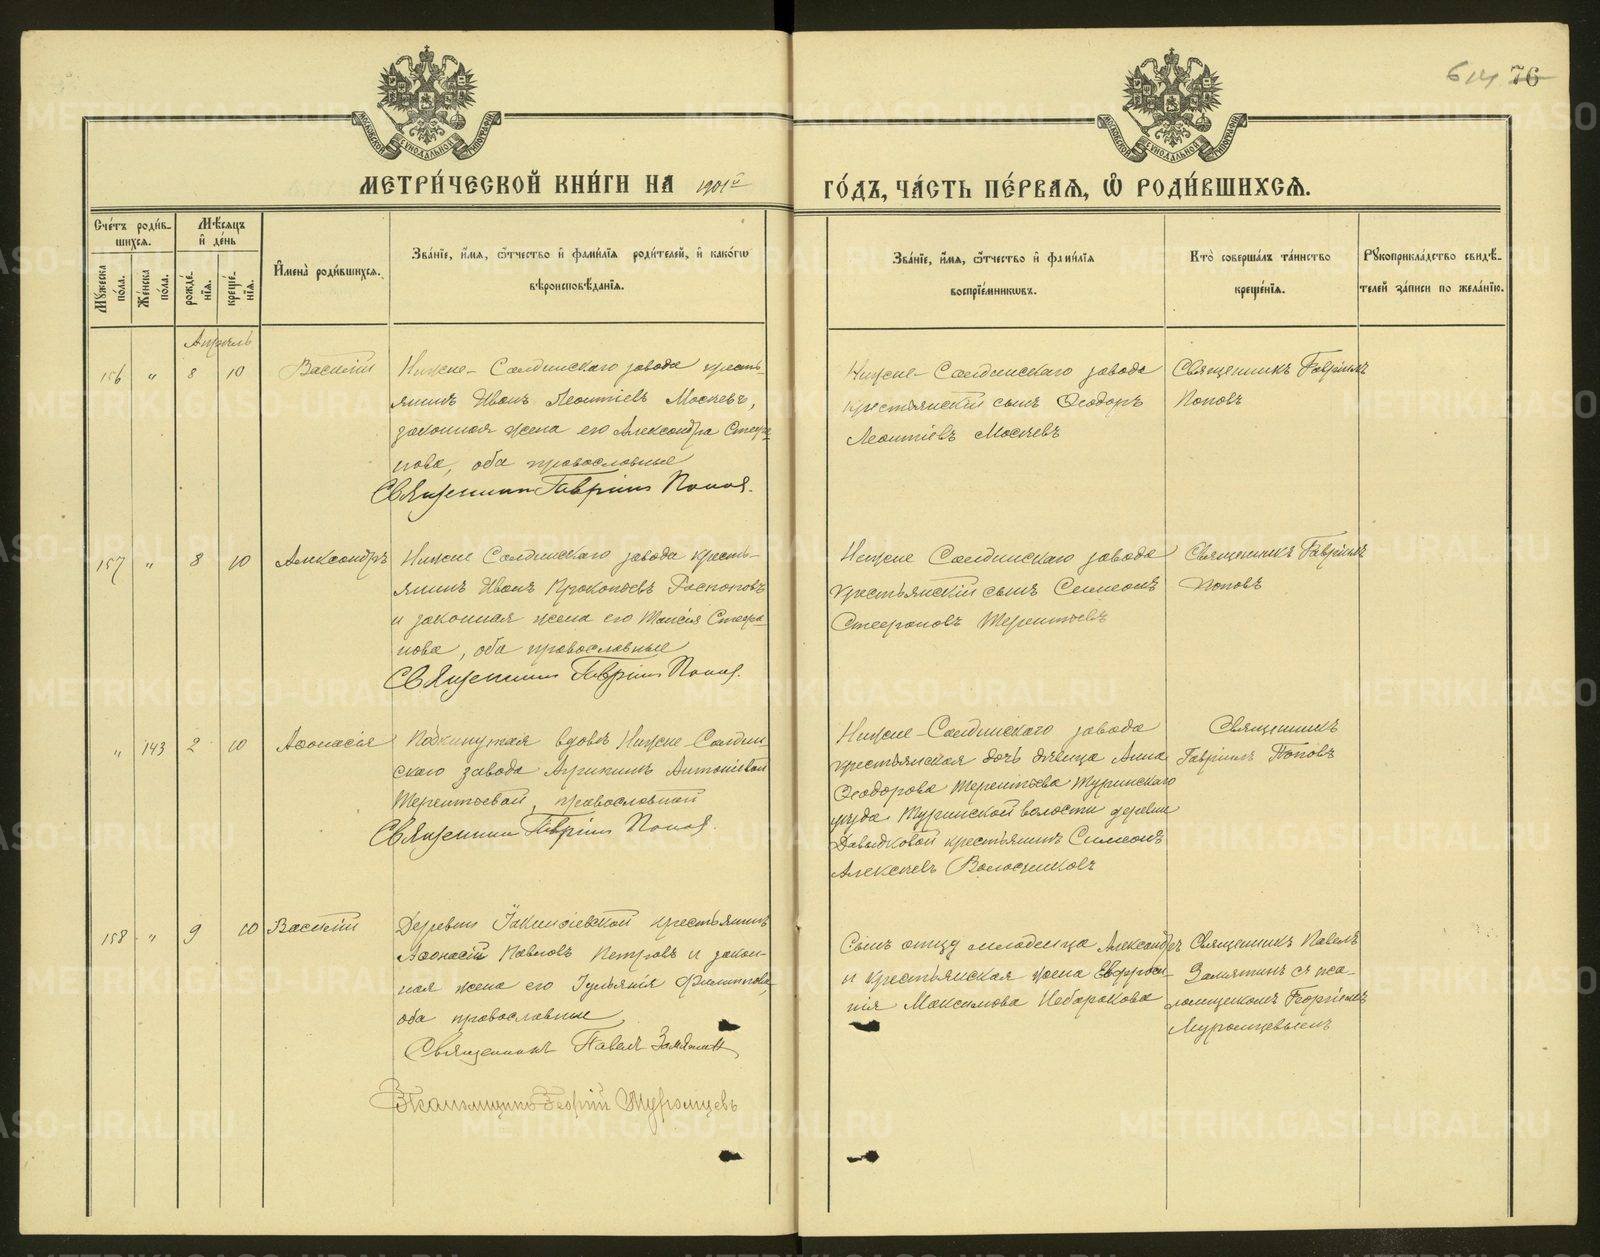 614 76
МЕТРИ́ЧЕСКОЙ КНИ́ГИ НА 1901й ГО́ДЪ, ЧА́СТЬ ПЕ́РВАЯ, Ѿ РОДИ́ВШИХСЯ.
Сче́тъ роди́в-
шихся.
Му́жеска по́ла.
Же́нска по́ла.
Мѣ́сяцъ
и де́нь
рожде́нія.
креще́нія.
И҆мена̀ роди́вшихся.
Зва́ніе, и҆́мя, ѻ҆́тчество и҆ фами́лія роди́телей, и҆ како́гѡ
вѣроисповѣ́данія.
Зва́ніе, и҆́мя, ѻ҆́тчество и҆ фами́лія
воспрїе́мникѡвъ.
Кто̀ соверша́лъ та́инство
креще́нія.
Рꙋкоприкла́дство свидѣ́-
телей за́писи по жела́нію.
Апрѣль
156 " 8 10 Василій
Нижне-Салдинскаго завода кресть-
янинъ Иванъ Леонтіевъ Мосеевъ,
законная жена его Александра Стефа-
нова, оба православные
Священникъ Гавріилъ Поповъ.
Нижне-Салдинскаго завода
крестьянскій сынъ Ѳеодоръ
Леонтіевъ Мосеевъ
Священникъ Гавріилъ
Поповъ
157 " 8 10 Александръ
Нижне Салдинскаго завода кресть-
янинъ Иванъ Прокопьевъ Распоповъ
и законная жена его Таисія Стефа-
нова, оба православные
Священникъ Гавріилъ Поповъ.
Нижне Салдинскаго завода
крестьянскій сынъ Симеонъ
Стефановъ Терентьевъ
Священникъ Гавріилъ
Поповъ
" 143 2 10 Аѳанасія
Подкинутая вдовѣ Нижне-Салдин-
скаго завода Агрипинѣ Антоніевой
Терентьевой, православной
Священникъ Гавріилъ Поповъ.
Нижне-Салдинскаго завода
крестьянская дочь дѣвица Анна
Ѳеодорова Терентьева Туринскаго
уѣзда Туринской волости деревни
Давыдковой крестьянинъ Симеонъ
Алексѣевъ
Священникъ
Гавріилъ Поповъ
158 " 9 10 Василій
Деревни Іакинѳіевской крестьянинъ
Аѳанасій Павловъ Петровъ и закон-
ная жена его Іуліянія Филиппова,
оба православные
Священникъ Павелъ Замятинъ
Псаломщикъ Георгій Муромцевъ
Сынъ отцу младенца Александръ
и крестьянская жена Евфроси-
нія Максимова
Священникъ Павелъ
Замятинъ съ пса-
ломщикомъ Георгіемъ
Муромцевымъ
METRIKI.GASO-URAL.RU